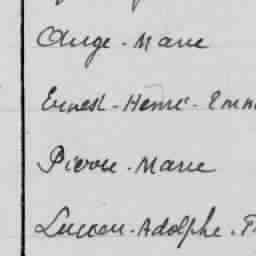 Ange-Marie
Ernest-Henri-Emm
Pierre-Marie
Lucien-Adolphe-F